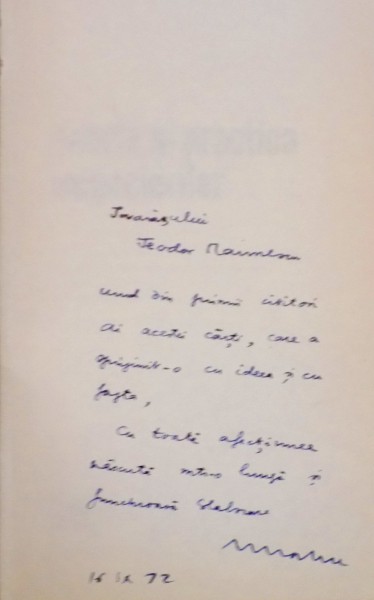 Tovarășului
Teodor Marinescu
unul din primii cititori
ai acestei cărți, care a
sprijinit-o cu ideea și cu
fapta,
Cu toată afecțiunea
născută într-o lungă și
16 IX 72